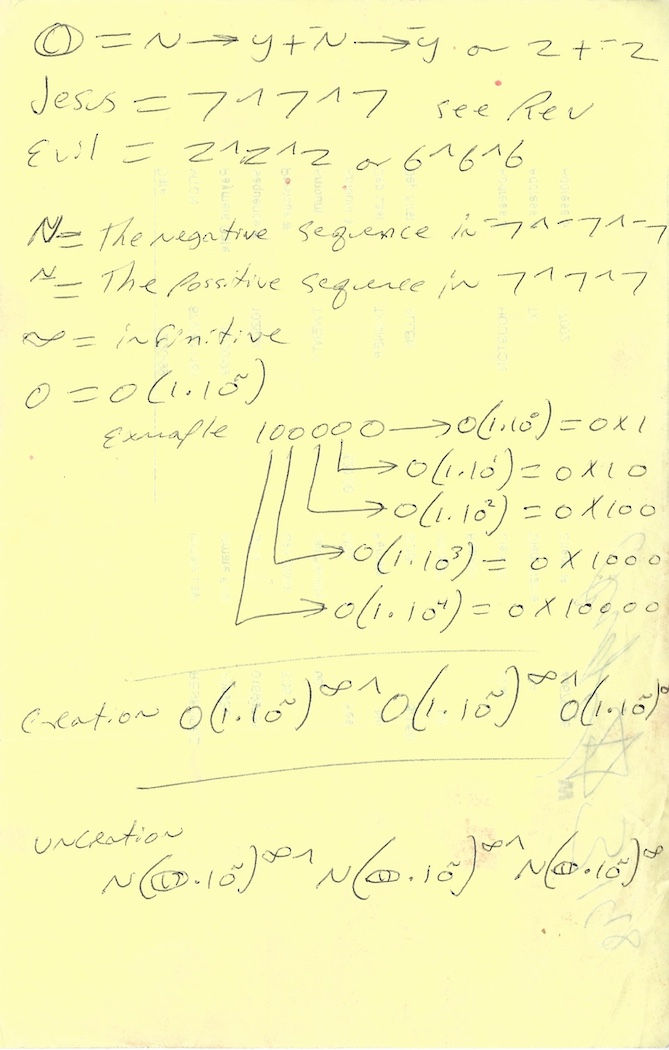 Ⓞ = N → y + ⁻N → ⁻y or 2 + ⁻2
Jesus = 7^7^7 see Rev
Evil = 2^2^2 or 6^6^6
N = The negative sequence in ⁻7^⁻7^⁻7
~ = The possitive sequence in 7^7^7
∞ = infinitive
0 = 0(1·10^~)
Exmaple 100000 → 0(1·10⁰) = 0X1
→ 0(1·10¹) = 0X10
→ 0(1·10²) = 0X100
→ 0(1·10³) = 0X1000
→ 0(1·10⁴) = 0X10000
Creation 0(1·10^~)^∞ ^ 0(1·10^~)^∞ ^ 0(1·10^~)^∞
UNCreation
N(Ⓞ·10^~)^∞ ^ N(Ⓞ·10^~)^∞ ^ N(Ⓞ·10^~)^∞